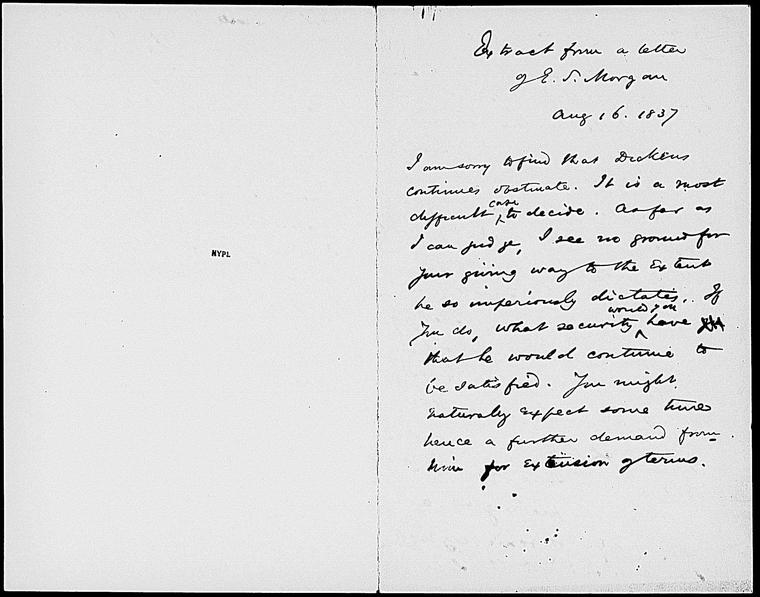 NYPL
Extract from a letter
of E. S. Morgan
Aug 16. 1837
I am sorry to find that Dickens
continues obstinate. It is a most
difficult case to decide. As far as
I can judge, I see no ground for
your giving way to the extent
he so imperiously dictates. If
You do, what security would you have
that he would continue to
be satisfied. You might
naturally expect some time
hence a further demand from
him for extension of terms.